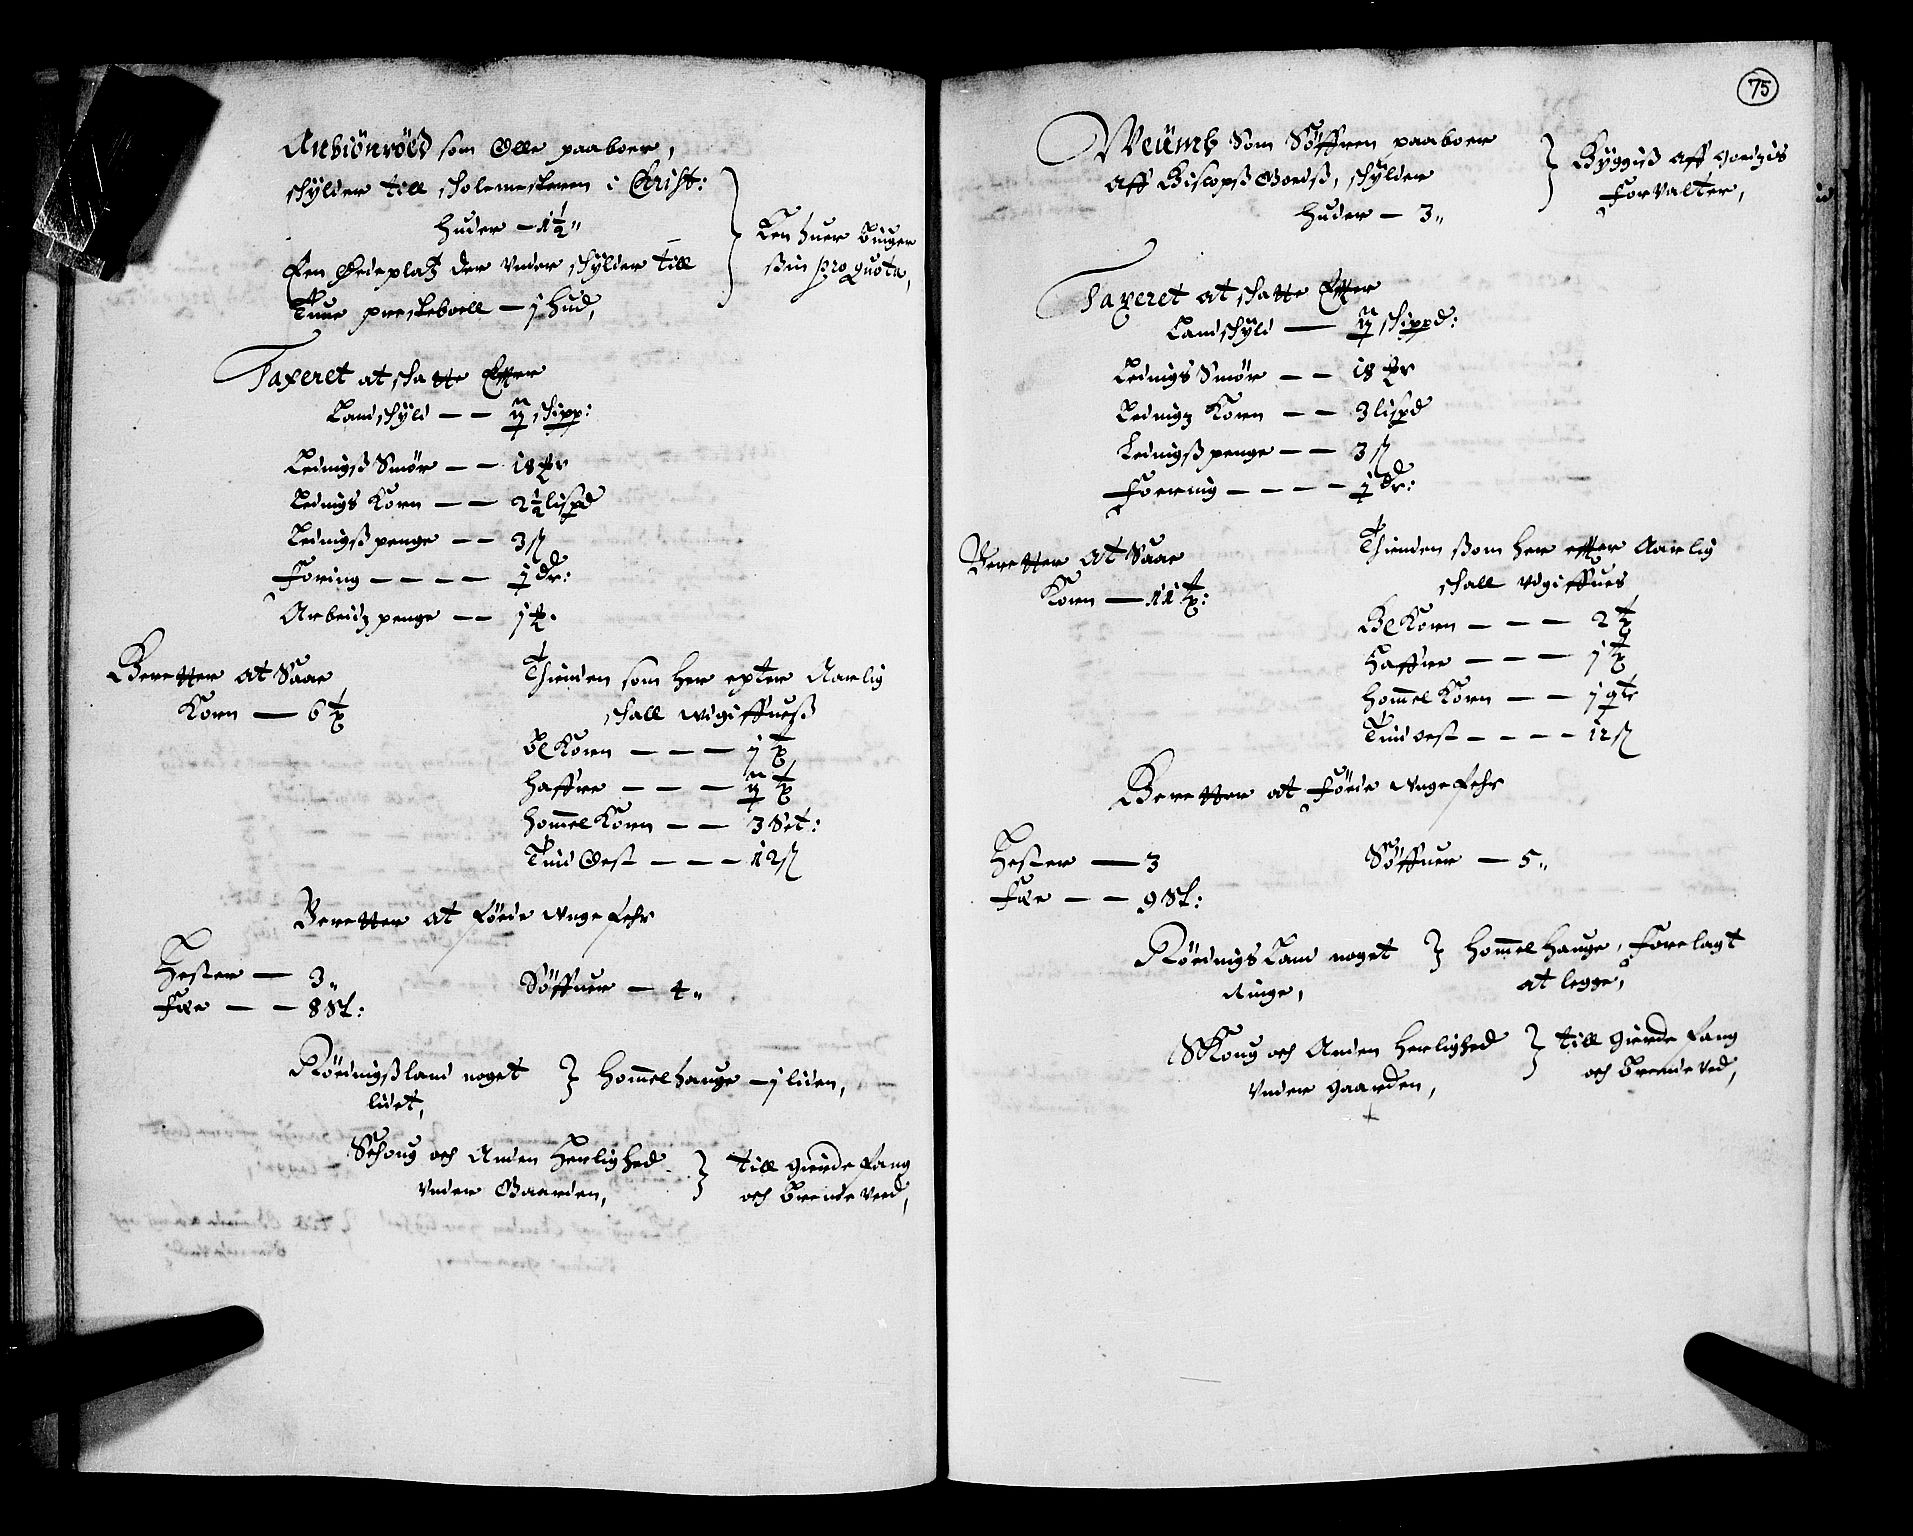 Anbiönröed som Olle paaboer,
schylder till scholemesteren i Christ:
huder — 1½„
Een Ødeplatz der under schylder till
Tune presteboell — j hud,
Len huer Binger
sin pro Quota,
Taxeret at schatte Effter
Landschyld — — ij schipp:
Ledingß Smör — — 18 ℔r
Ledings Korn — — 2½ lispd
Ledingß penge — — 3 ß
Foring — — — — j dr:
Arbeidz penge — — j ℔.
Beretter at Saae
Korn — 6 t
Thienden som her epter Aarlig
schall udgiffueß
Bl Korn — — — j t
Haffre — — — ij t
Hommel Korn — — 3 Set:
Tiid Oest — — — 12 ß
Beretter at föede ungefehr
Hester — 3„
Fæe — — 8 St:
Söffuer — 4„
Röedningßland noget
lidet,
Hommelhauge — j liden,
Schoug och Anden Herlighed
Under Gaarden,
till gierde fang
och Brende Ved,
75
Weümb Som Söffren paaboer
aff Bispopß Goedß, schylder
huder — 3„
Byggis aff godzis
Forvalter,
Taxeret at schatte Effter
Landschyld — ij schippd:
Ledings Smör — — 18 ℔r
Ledings Korn — — 3 lispd
Ledingß penge — — 3 ß
Foering — — — — j dr:
Beretter at Saae
Korn — 11 t:
Thienden ßom her effter Aarlig
schall udgiffues
Bl Korn — — — 2 t
Haffre — — — j t
Hommel Korn — — j qte
Tiid oest — — — — 12 ß
Beretter at Föede ungefehr
Hester — 3
Fæe — — 9 St:
Söffuer — 5„
Röednings Land noget
Ringe,
Hommel Hauge, Forelagt
at legge,
SKoug och Anden Herlighed
Under gaarden,
till gierde fang
och Brende ved,